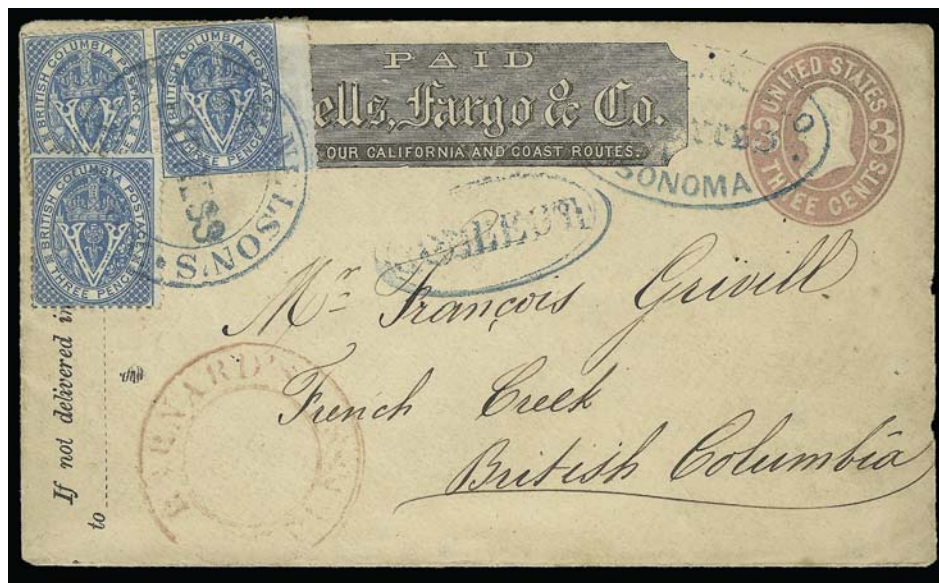 BRITISH COLUMBIA POSTAGE
THREE PENCE
BRITISH COLUMBIA POSTAGE
THREE PENCE
BRITISH COLUMBIA POSTAGE
THREE PENCE
PAID
ells, Fargo & Co.
OUR CALIFORNIA AND COAST ROUTES.
UNITED STATES
3 3
THREE CENTS
SONOMA
NELSON'S
COLLECT
Mr François Grivill
French Creek
British Columbia
If not delivered in
to